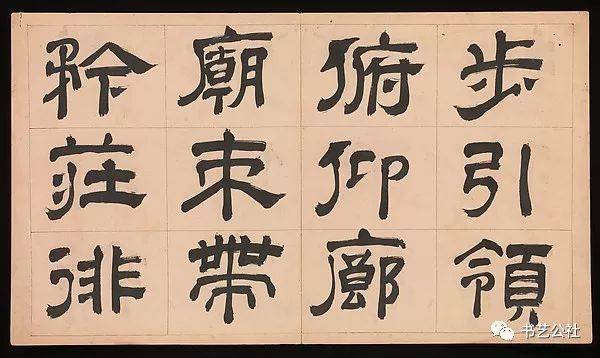 步引領
俯仰廊
廟束帶
矜莊徘
书艺公社